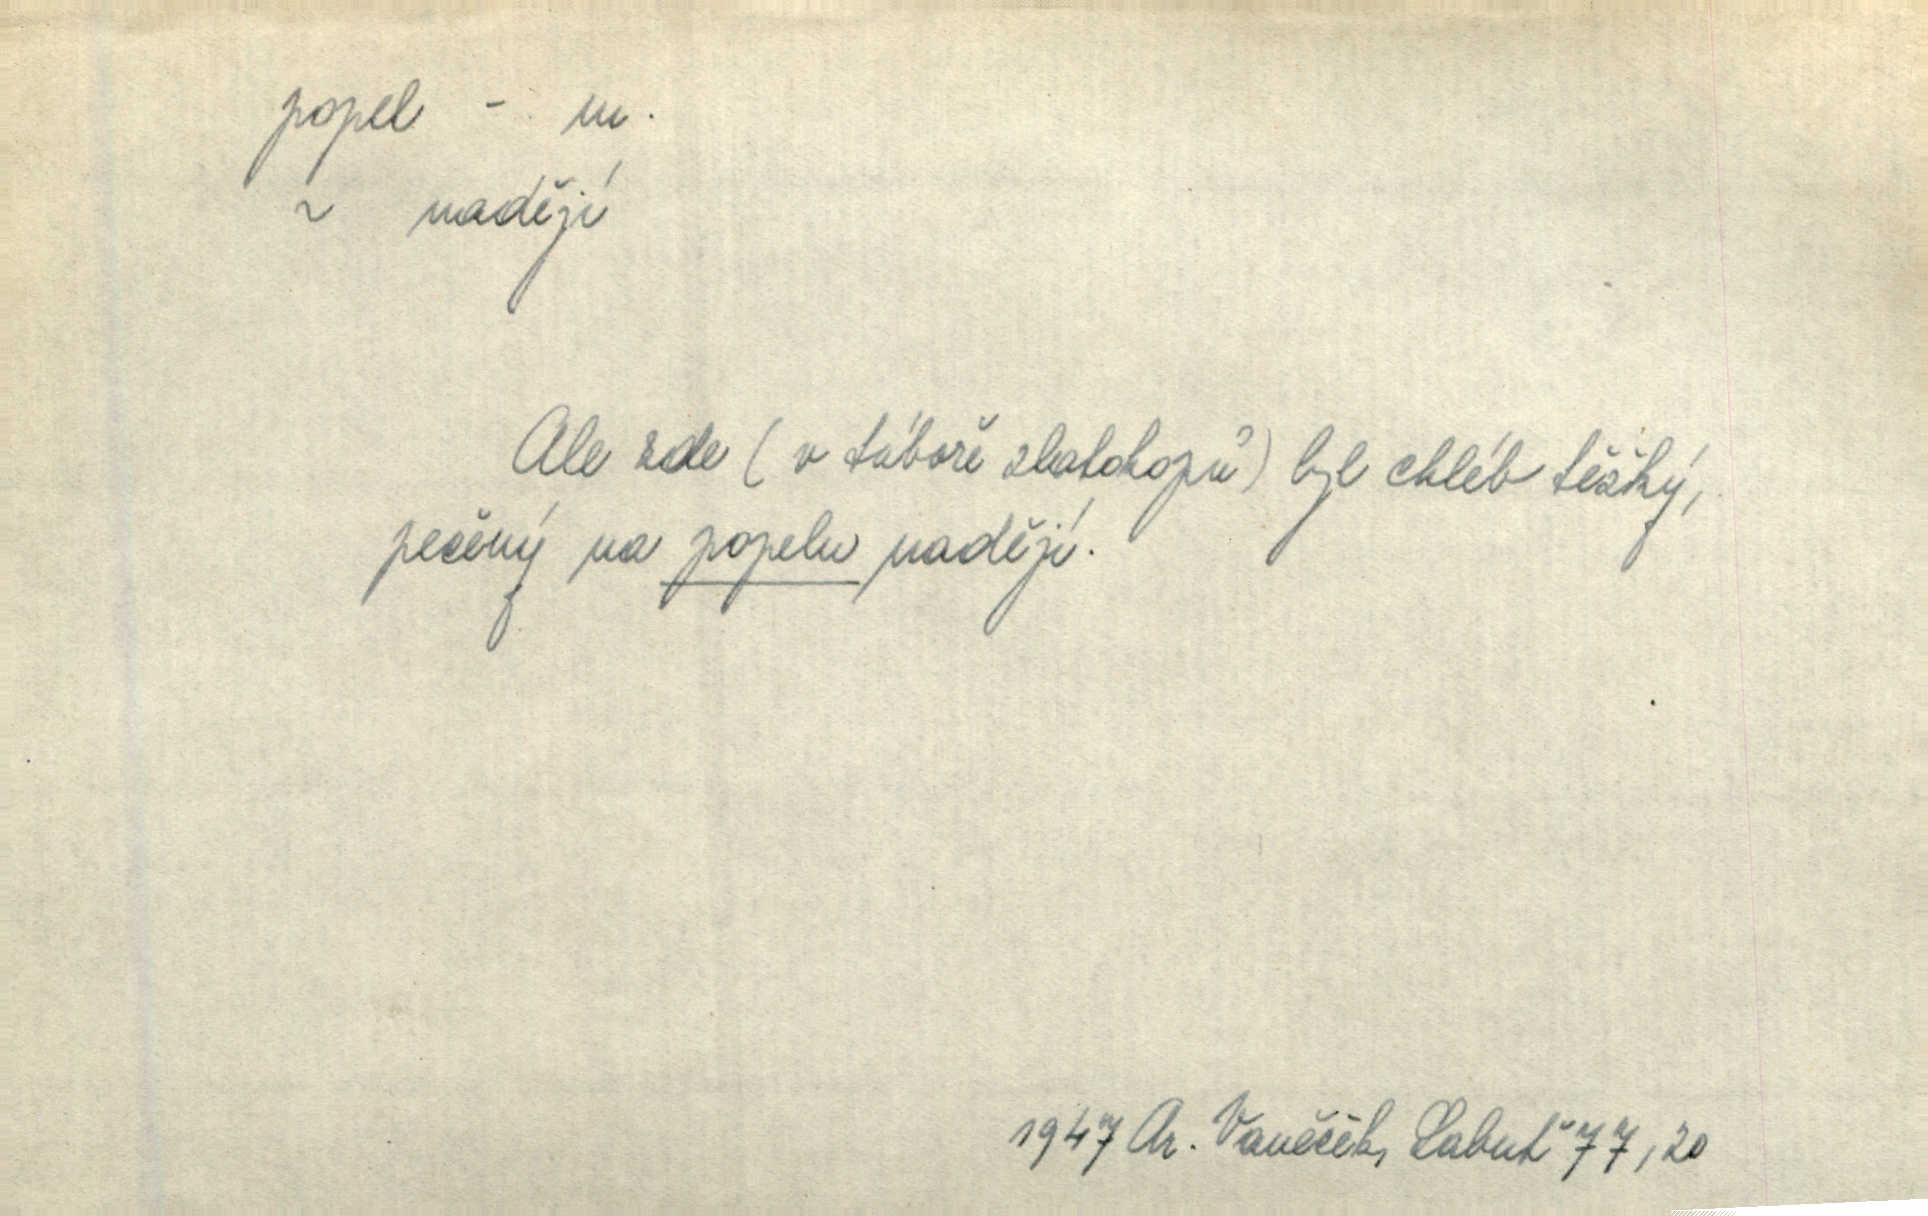 popel - m.
~ nadějí
Ale zde (v táboře zlatokopů) byl chléb těžký,
pečený na popelu nadějí.
1947 Ar. Vaněček, Labuť 77, 20